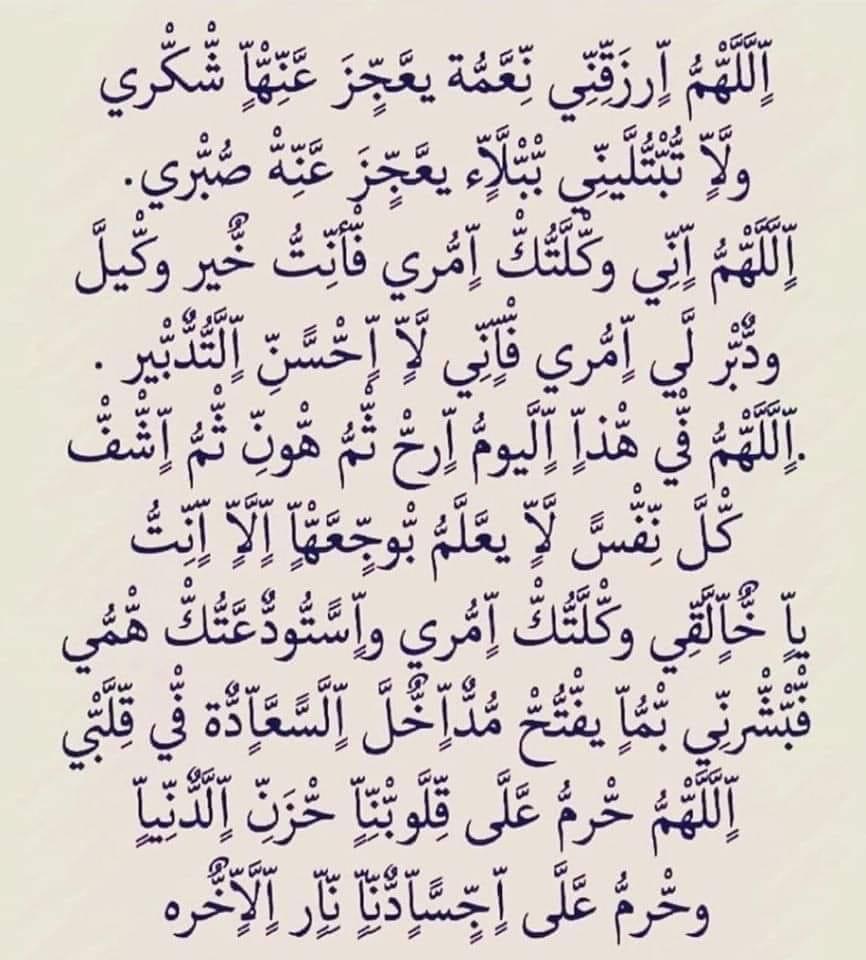 اٍَّلَلَّهّْمُ اٍَّرزَقٌِنِّي نِعَّمُة يعَّجٍّزَ عَّنِّهّْاٍَّ شّْكْري
ولَّاٍَّ تُّبّْتُّلَّينِّي بّْبّْلَّاٍَّء يعَّجٍّزَ عَّنِّهّْ صّْبّْري.
اٍَّلَلَّهّْمُ اٍَّنِّي وكّْلَّتُّكّْ اٍَّمُّري فّْأنِّتُّ خٌّير وكّْيلَّ
ودٌّبّْر لَّي اٍَّمُّري فّْاٍَّنِّي لَّاٍَّ اٍَّحّْسًّنِّ اٍَّلَّتُّدٌّبّْير .
.اٍَّلَلَّهّْمُ فّْي هّْذاٍَّ اٍَّلَّيومُّ اٍَّرحّْ ثّْمُّ هّْونِّ ثّْمُّ اٍَّشّْفّْ
كّْلَّ نِّفّْسًّ لَّاٍَّ يعَّلَّمُّ بّْوجٍّعَّهّْاٍَّ اٍَّلَّاٍَّ اٍَّنِّتُّ
ياٍَّ خٌّاٍَّلَّقِّي وكّْلَّتُّكّْ اٍَّمُّري واٍَّسًّتُّودٌّعَّتُّكّْ هّْمُّي
فّْبّْشّْرنِّي بّْمُّاٍَّ يفّْتُّحّْ مُّدٌّاٍَّخٌّلَّ اٍَّلَّسًّعَّاٍَّدٌّة فّْي قِّلَّبّْي
اٍَّلَلَّهّْمُ حّْرمُّ عَّلَّى قِّلَّوبّْنِّاٍَّ حّْزَنِّ اٍَّلَّدٌّنِّياٍَّ
وحّْرمُّ عَّلَّى اٍَّجٍّسًّاٍَّدٌّنِّاٍَّ نِّاٍَّر اٍَّلَّاٍَّخٌّره